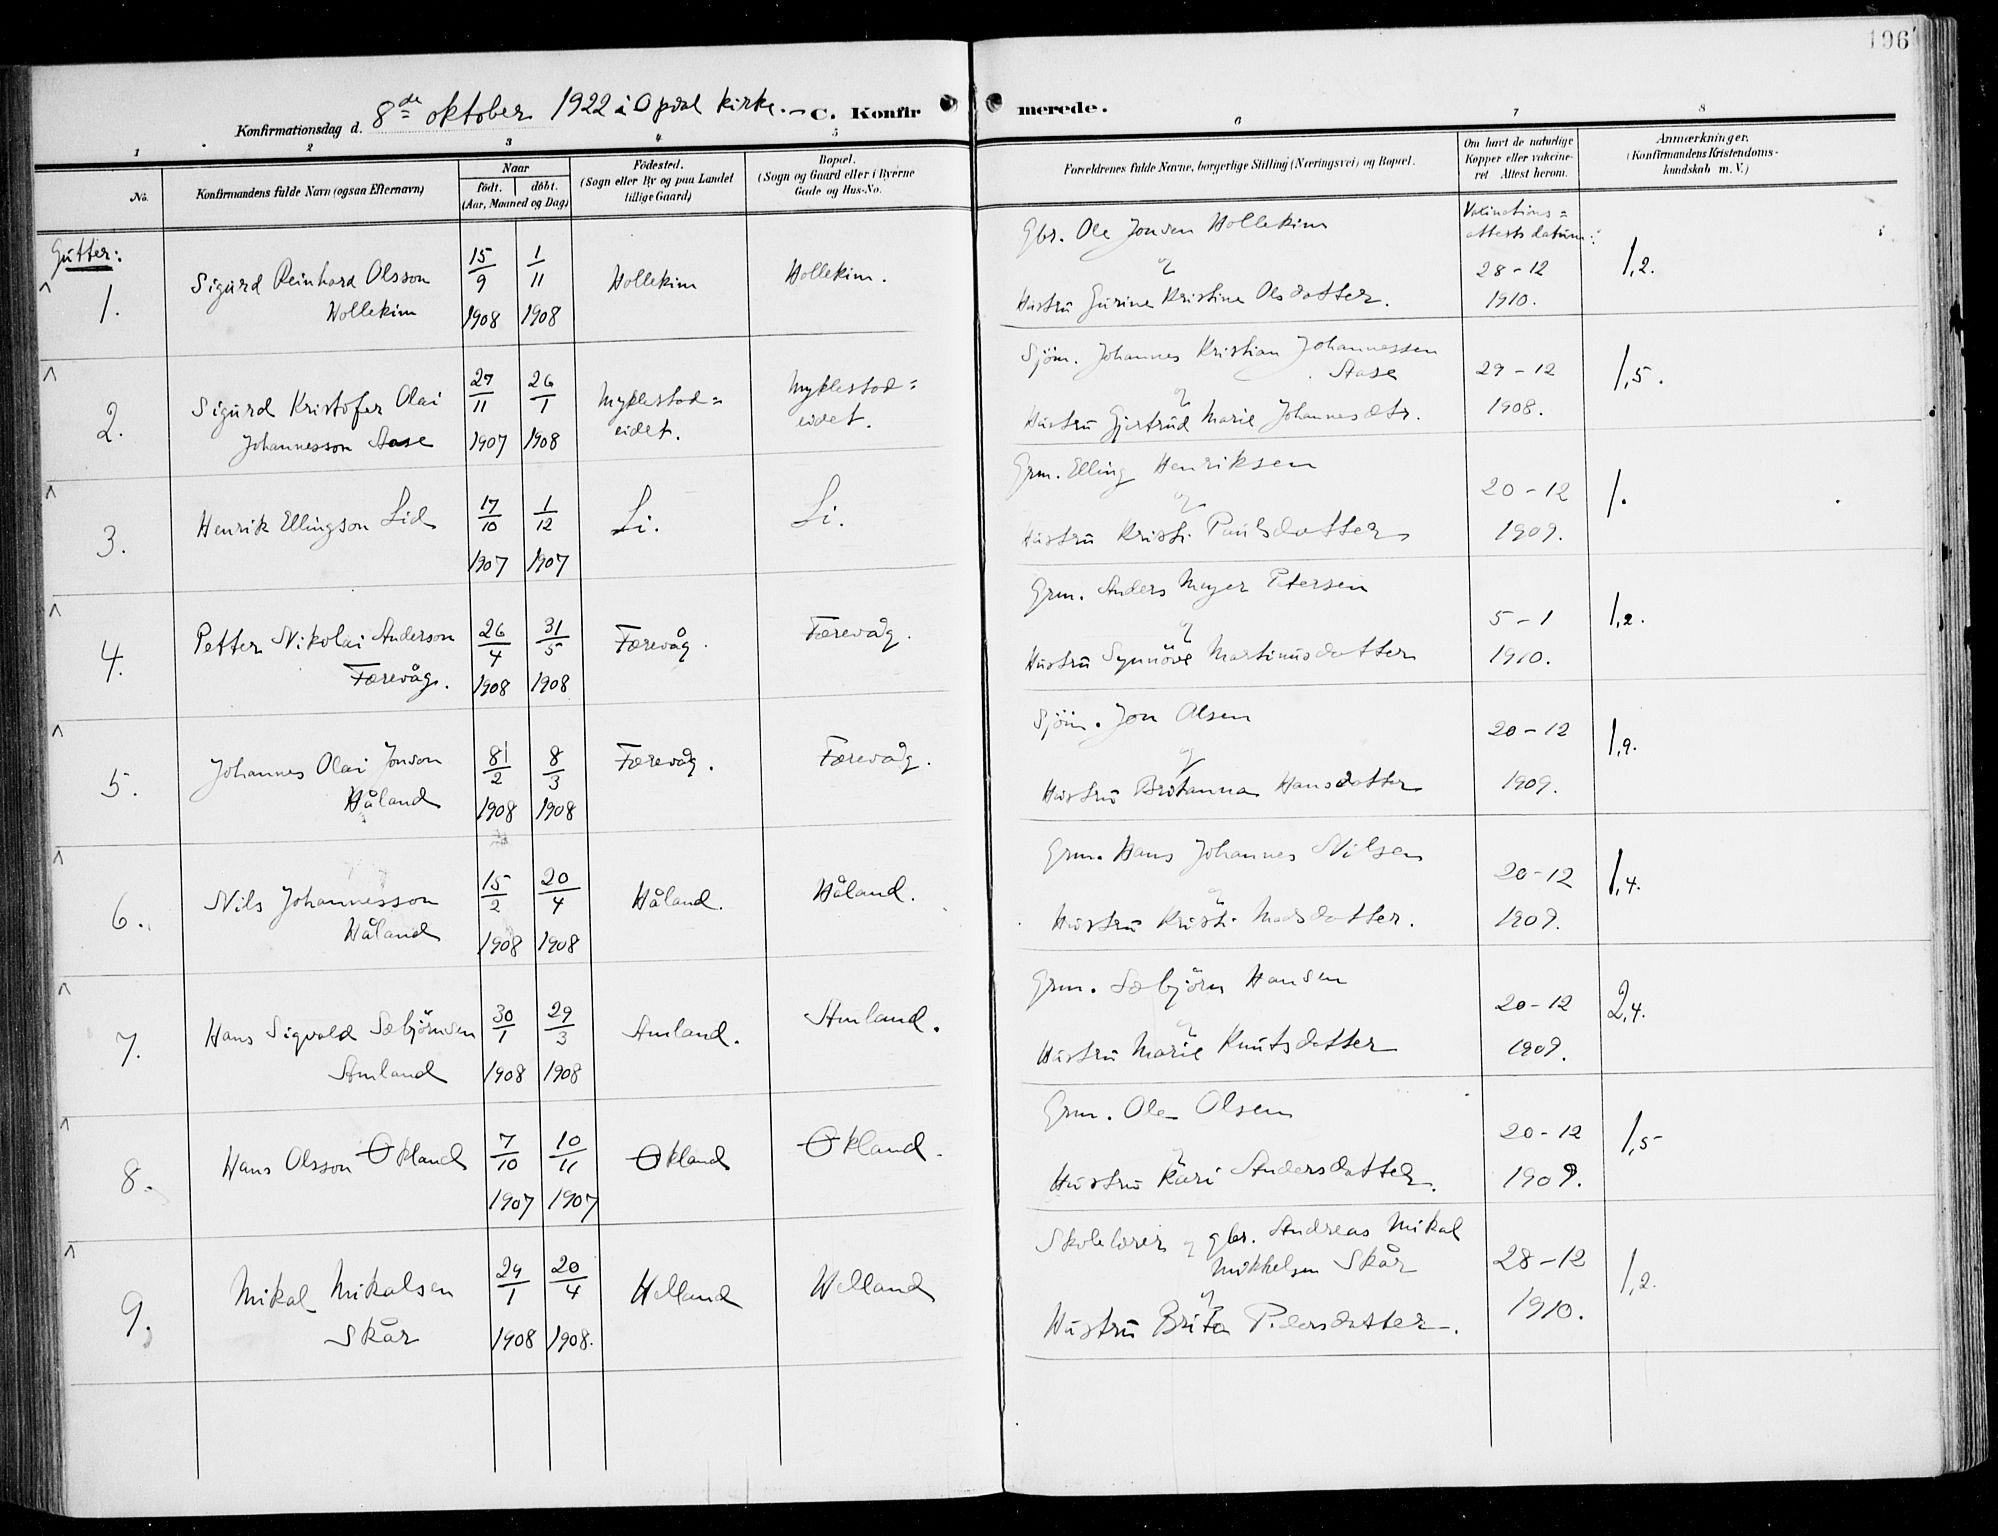 196
Konfirmationsdag d. 8de oktober 1922 i Opdal kirke. – C. Konfir merede.
1 2 3 4 5 6 7 8
No.
Konfirmandens fulde Navn (ogsaa Efternavn)
Naar
født. døbt.
(Aar, Maaned og Dag)
Fødested.
(Sogn eller By og paa Landet
tillige Gaard)
Bopæl.
(Sogn og Gaard eller i Byerne
Gade og Hus-No.
Forældrenes fulde Navne, borgerlige Stilling (Næringsvei) og Bopæl.
Om havt de naturlige
Kopper eller vakcine-
ret Attest herom.
Anmærkninger.
(Konfirmandens Kristendoms-
kundskab m. V.)
Gutter:
Vakinations=
attests datum:
1. Sigurd Reinhard Olsson
Hollekim
15/9 1908
1/11 1908
Hollekim
Hollekim.
Gbr. Ole Jonsen Hollekim
og
Hustru Gurine Kristine Olsdatter.
28-12
1910.
1,2.
2. Sigurd Kristofer Olai
Johannesson Aase
27/11 1907
26/1 1908
Myklestad=
eidet.
Myklestad=
eidet.
Sjöm. Johannes Kristian Johannessen
Aase
og
Hustru Gjertrud Marie Johannesdtr.
29-12
1908.
1,5.
3. Henrik Ellingson Lid
17/10 1907
1/12 1907
Li.
Li.
Grm. Elling Henriksen
og
Hustru Kristi Paulsdatter
20-12
1909.
1.
4. Petter Nikolai Anderson
Færevåg.
26/4 1908
31/5 1908
Færevåg.
Færevåg.
Grm. Anders Meyer Petersen
og
Hustru Synnöve Martinusdatter
5-1
1910.
1,2.
5. Johannes Olai Jonson
Håland
8/2 1908
8/3 1908
Færevåg.
Færevåg.
Sjöm. Jon Olsen
og
Hustru Britanna Hansdatter
20-12
1909.
1,9.
6. Nils Johannesson
Håland
15/2 1908
20/4 1908
Håland.
Håland.
Grm. Hans Johannes Nilsen
og
Hustru Kristi Madsdatter.
20-12
1909.
1,4.
7. Hans Sigvald Sæbjörnsen
Amland
30/1 1908
29/3 1908
Amland.
Amland.
Grm. Sæbjörn Hansen
og
Hustru Marie Knutsdatter
20-12
1909.
2,4.
8. Hans Olsson Økland
7/10 1907
10/11 1907
Økland
Økland.
Grm. Ole Olsen
og
Hustru Kari Andersdatter.
20-12
1909.
1,5
9. Mikal Mikalsen
Skår
29/1 1908
20/4 1908.
Helland
Helland
Skolelærer og gbr. Andreas Mikal
Mikkelsen Skår
og
Hustru Brita Pedersdatter.
28-12
1910.
1,2.